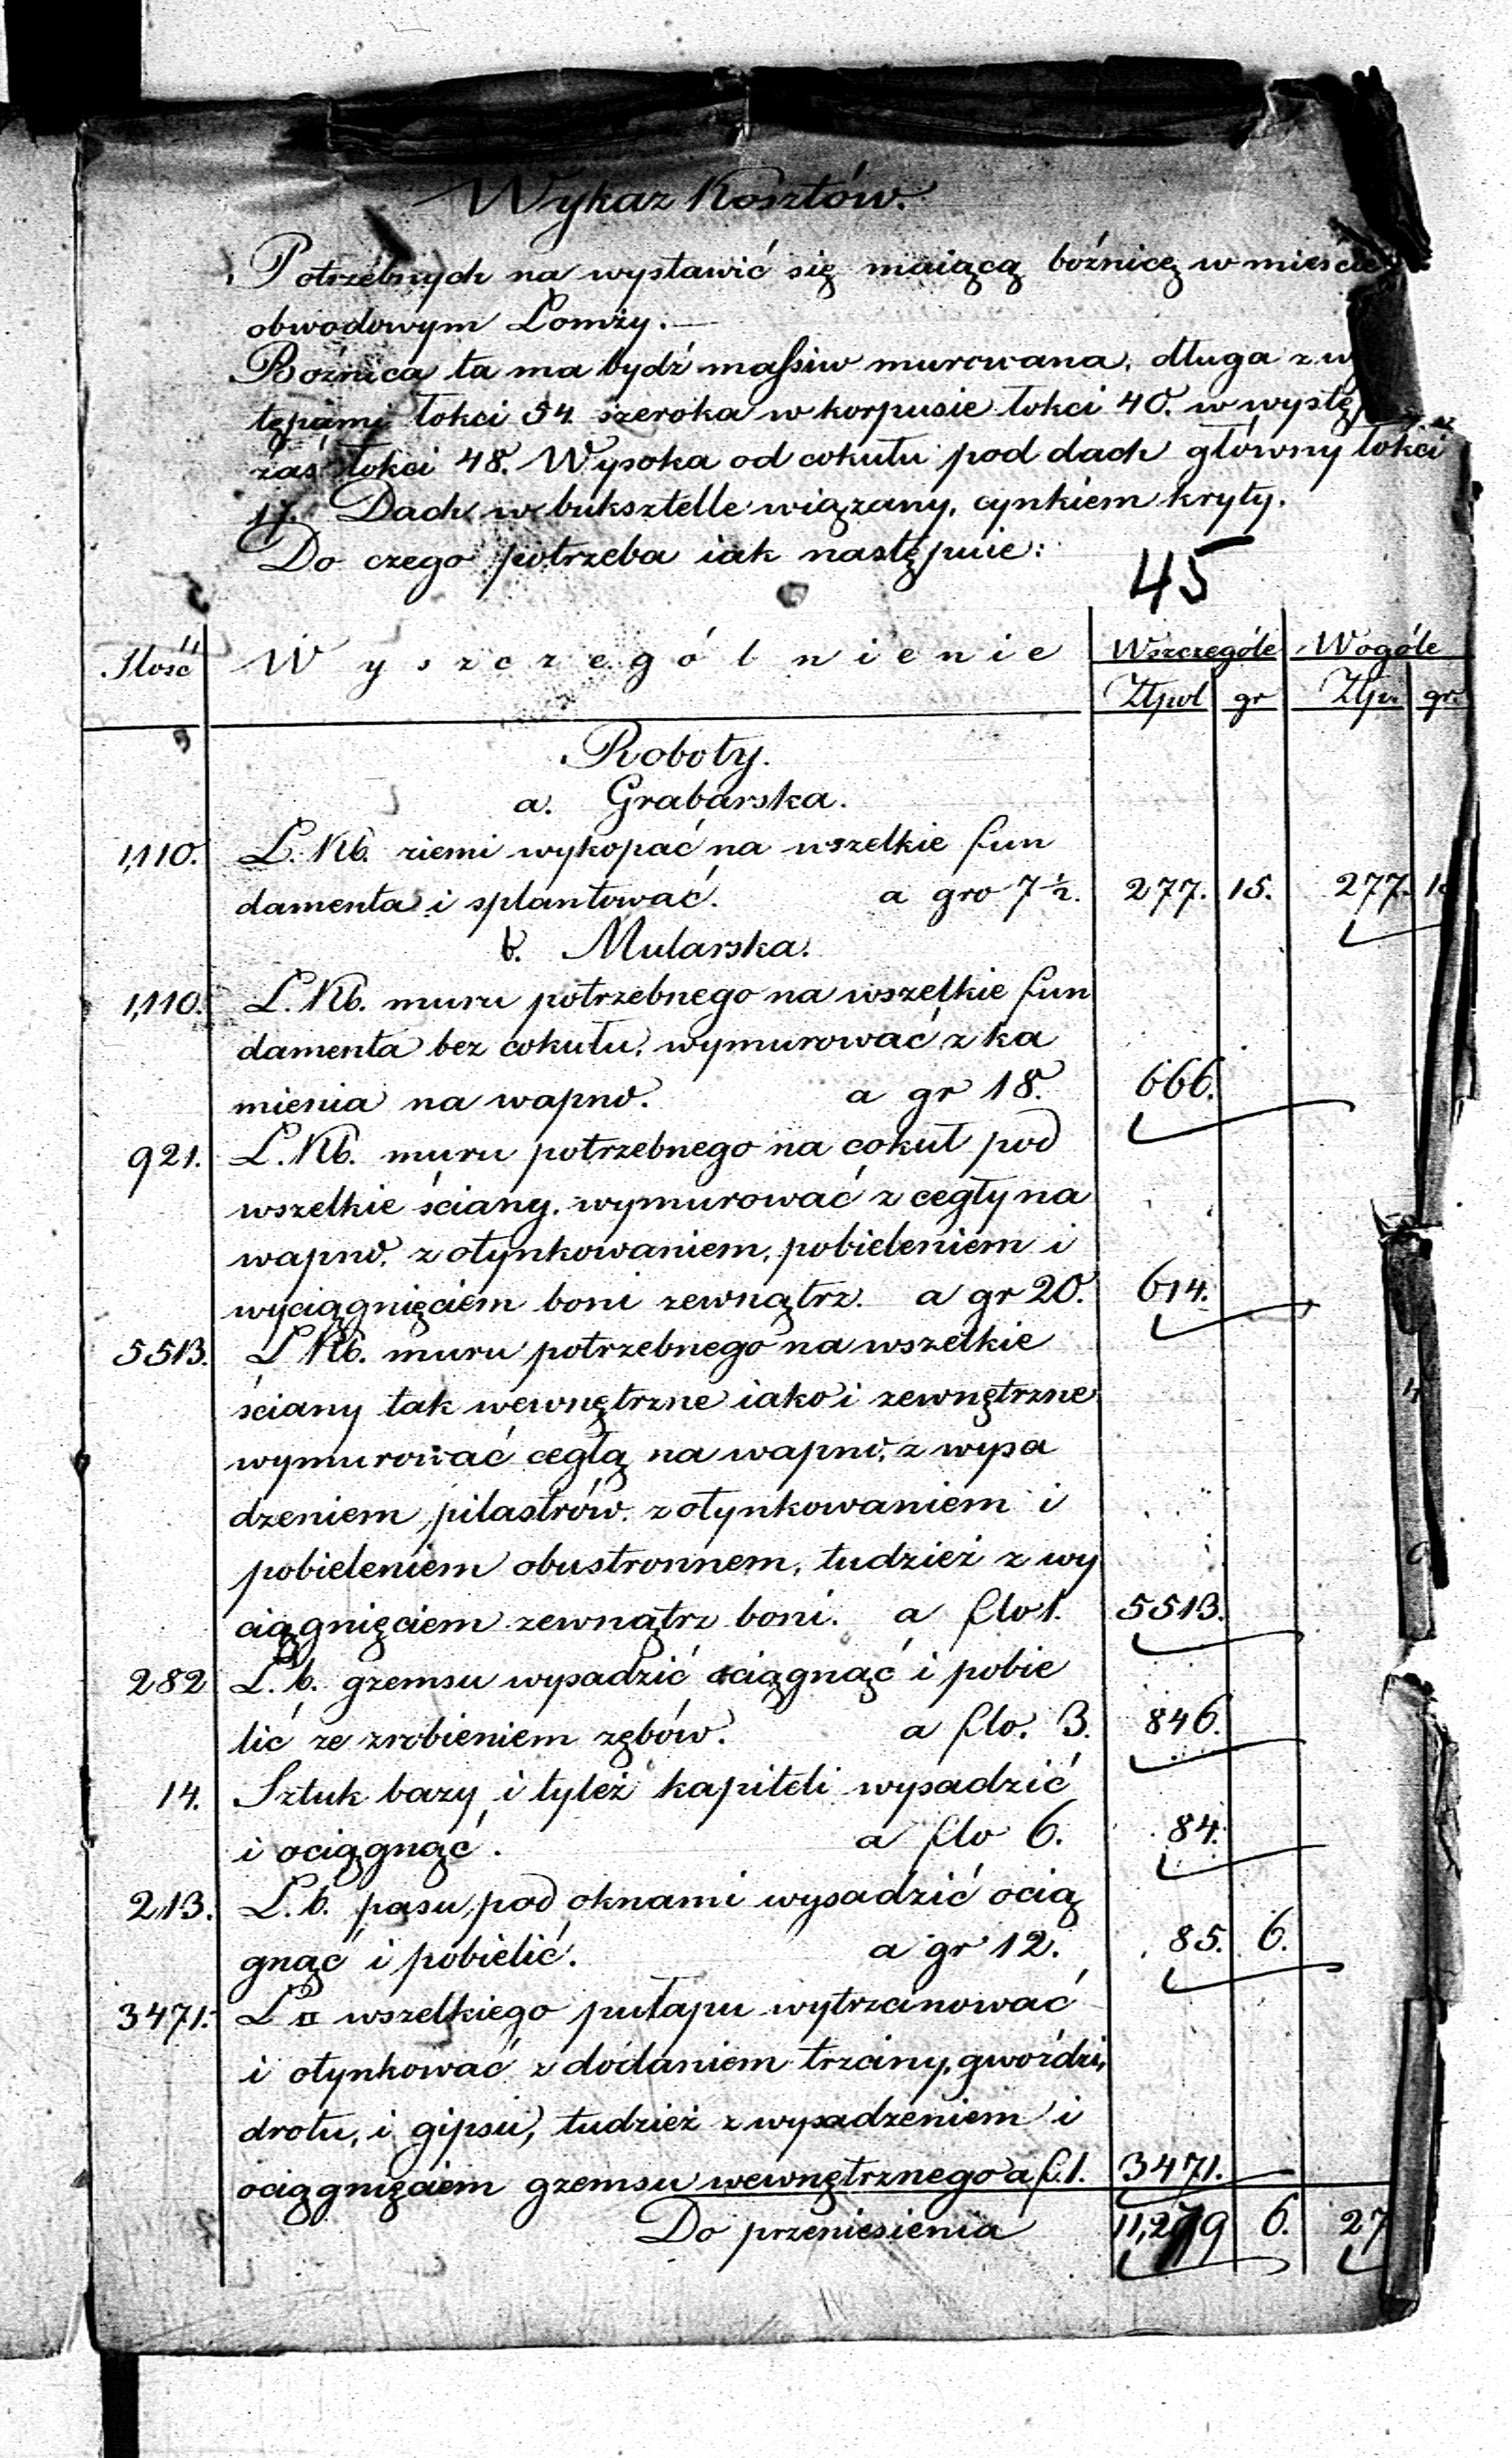 Wykaz Kosztów.
Potrzebnych na wystawić się maiącą bóżnicę w mieście
obwodowym Łomży. —
Bożnica ta ma bydź massiw murowana, długa z wy
tępami łokci 54 szeroka w korpusie łokci 40. w wystę
zaś łokci 48. Wysoka od cokułu pod dach główny łokci
17. Dach w buksztelle wiązany, cynkiem kryty.
Do czego potrzeba iak następuie:
45
Ilość Wyszczególnienie Wszczególe Wogóle
Złpol gr Złp. gr.
Roboty.
a. Grabarska.
1,110. Ł. Kb. ziemi wykopać na wszelkie fun
damenta i splantować. a gro 7½. 277. 15. 277. 1
b. Mularska.
1,110. Ł. Kb. muru potrzebnego na wszelkie fun
damenta bez cokułu, wymurować z ka
mienia na wapno. a gr 18. 666.
921. Ł. Kb. muru potrzebnego na cokuł pod
wszelkie ściany, wymurować z cegły na
wapno, z otynkowaniem, pobieleniem i
wyciągnięciem boni zewnątrz. a gr 20. 614.
5513. Ł Kb. muru potrzebnego na wszelkie
ściany tak wewnętrzne iako i zewnętrzne
wymurować cegłą na wapno, z wysa
dzeniem pilastrów, z otynkowaniem i
pobieleniem obustronnem, tudzież z wy
ciągnięciem zewnątrz boni. a flo 1. 5513.
282 Ł. b. gzemsu wysadzić ociągnąć i pobie
lić ze zrobieniem zębów. a flo. 3. 846.
14. Sztuk bazy i tyleż kapiteli wysadzić
i ociągnąć. a flo 6. 84.
213. Ł. b. pasu pod oknami wysadzić ocią
gnąć i pobielić. a gr 12. 85. 6.
3471. Ł □ wszelkiego pułapu wytrzcinować
i otynkować z dodaniem trzciny, gwoździ,
drotu, i gipsu, tudzież z wysadzeniem i
ociągnięciem gzemsu wewnętrznego a f. 1. 3471.
Do przeniesienia 11,279 6. 27